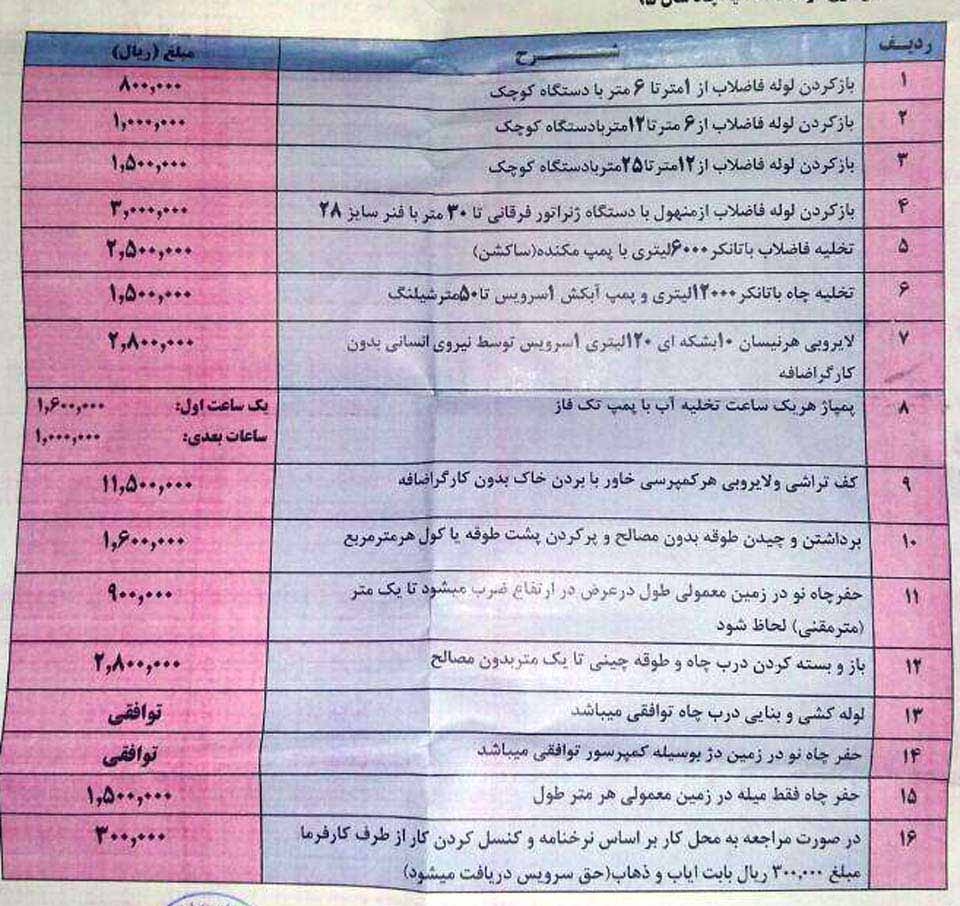 سال ۹۵
ردیف شرح مبلغ (ریال)
۱ بازکردن لوله فاضلاب از ۱مترتا ۶ متر با دستگاه کوچک ۸۰۰,۰۰۰
۲ بازکردن لوله فاضلاب از۶ مترتا۱۲متربادستگاه کوچک ۱,۰۰۰,۰۰۰
۳ بازکردن لوله فاضلاب از۱۲مترتا۲۵متربادستگاه کوچک ۱,۵۰۰,۰۰۰
۴ بازکردن لوله فاضلاب ازمنهول با دستگاه ژنراتور فرقانی تا ۳۰ متر با فنر سایز ۲۸ ۳,۰۰۰,۰۰۰
۵ تخلیه فاضلاب باتانکر۶۰۰۰لیتری با پمپ مکنده(ساکشن) ۲,۵۰۰,۰۰۰
۶ تخلیه چاه باتانکر۱۲۰۰۰لیتری و پمپ آبکش ۱سرویس تا۵۰مترشیلنگ ۱,۵۰۰,۰۰۰
۷ لایروبی هرنیسان ۱۰بشکه ای ۱۲۰لیتری ۱سرویس توسط نیروی انسانی بدون ۲,۸۰۰,۰۰۰
کارگراضافه
۸ پمپاژ هریک ساعت تخلیه آب با پمپ تک فاز یک ساعت اول: ۱,۶۰۰,۰۰۰
ساعات بعدی: ۱,۰۰۰,۰۰۰
۹ کف تراشی ولایروبی هرکمپرسی خاور با بردن خاک بدون کارگراضافه ۱۱,۵۰۰,۰۰۰
۱۰ برداشتن و چیدن طوقه بدون مصالح و پرکردن پشت طوقه یا کول هرمترمربع ۱,۶۰۰,۰۰۰
۱۱ حفرچاه نو در زمین معمولی طول درعرض در ارتفاع ضرب میشود تا یک متر ۹۰۰,۰۰۰
(مترمقنی) لحاظ شود
۱۲ باز و بسته کردن درب چاه و طوقه چینی تا یک متربدون مصالح ۲,۸۰۰,۰۰۰
۱۳ لوله کشی و بنایی درب چاه توافقی میباشد توافقی
۱۴ حفر چاه نو در زمین دژ بوسیله کمپرسور توافقی میباشد توافقی
۱۵ حفر چاه فقط میله در زمین معمولی هر متر طول ۱,۵۰۰,۰۰۰
۱۶ در صورت مراجعه به محل کار بر اساس نرخنامه و کنسل کردن کار از طرف کارفرما ۳۰۰,۰۰۰
مبلغ ۳۰۰,۰۰۰ ریال بابت ایاب و ذهاب(حق سرویس دریافت میشود)